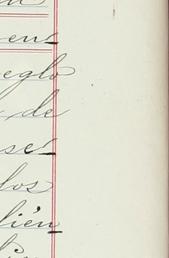 en
eglo
de
se
los
lién